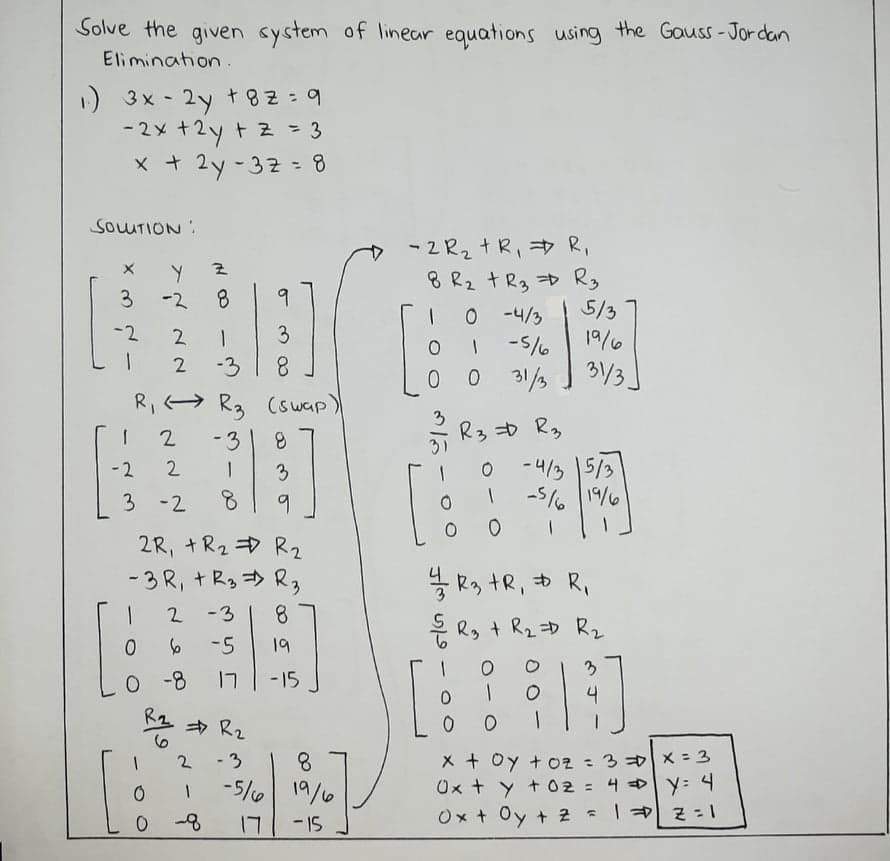 Solve the given system of linear equations using the Gauss-Jordan
Elimination.
1.) 3x - 2y + 8z = 9
-2x + 2y + z = 3
x + 2y - 3z = 8
SOLUTION:
x y z
[ 3 -2 8 | 9 ]
[ -2 2 1 | 3 ]
[ 1 2 -3 | 8 ]
R₁ ↔ R₃ (swap)
[ 1 2 -3 | 8 ]
[ -2 2 1 | 3 ]
[ 3 -2 8 | 9 ]
2R₁ + R₂ ⇒ R₂
-3R₁ + R₃ ⇒ R₃
[ 1 2 -3 | 8 ]
[ 0 6 -5 | 19 ]
[ 0 -8 17 | -15 ]
R₂/6 ⇒ R₂
[ 1 2 -3 | 8 ]
[ 0 1 -5/6 | 19/6 ]
[ 0 -8 17 | -15 ]
-2R₂ + R₁ ⇒ R₁
8R₂ + R₃ ⇒ R₃
[ 1 0 -4/3 | 5/3 ]
[ 0 1 -5/6 | 19/6 ]
[ 0 0 31/3 | 31/3 ]
3/31 R₃ ⇒ R₃
[ 1 0 -4/3 | 5/3 ]
[ 0 1 -5/6 | 19/6 ]
[ 0 0 1 | 1 ]
4/3 R₃ + R₁ ⇒ R₁
5/6 R₃ + R₂ ⇒ R₂
[ 1 0 0 | 3 ]
[ 0 1 0 | 4 ]
[ 0 0 1 | 1 ]
x + 0y + 0z = 3 ⇒ x = 3
0x + y + 0z = 4 ⇒ y = 4
0x + 0y + z = 1 ⇒ z = 1